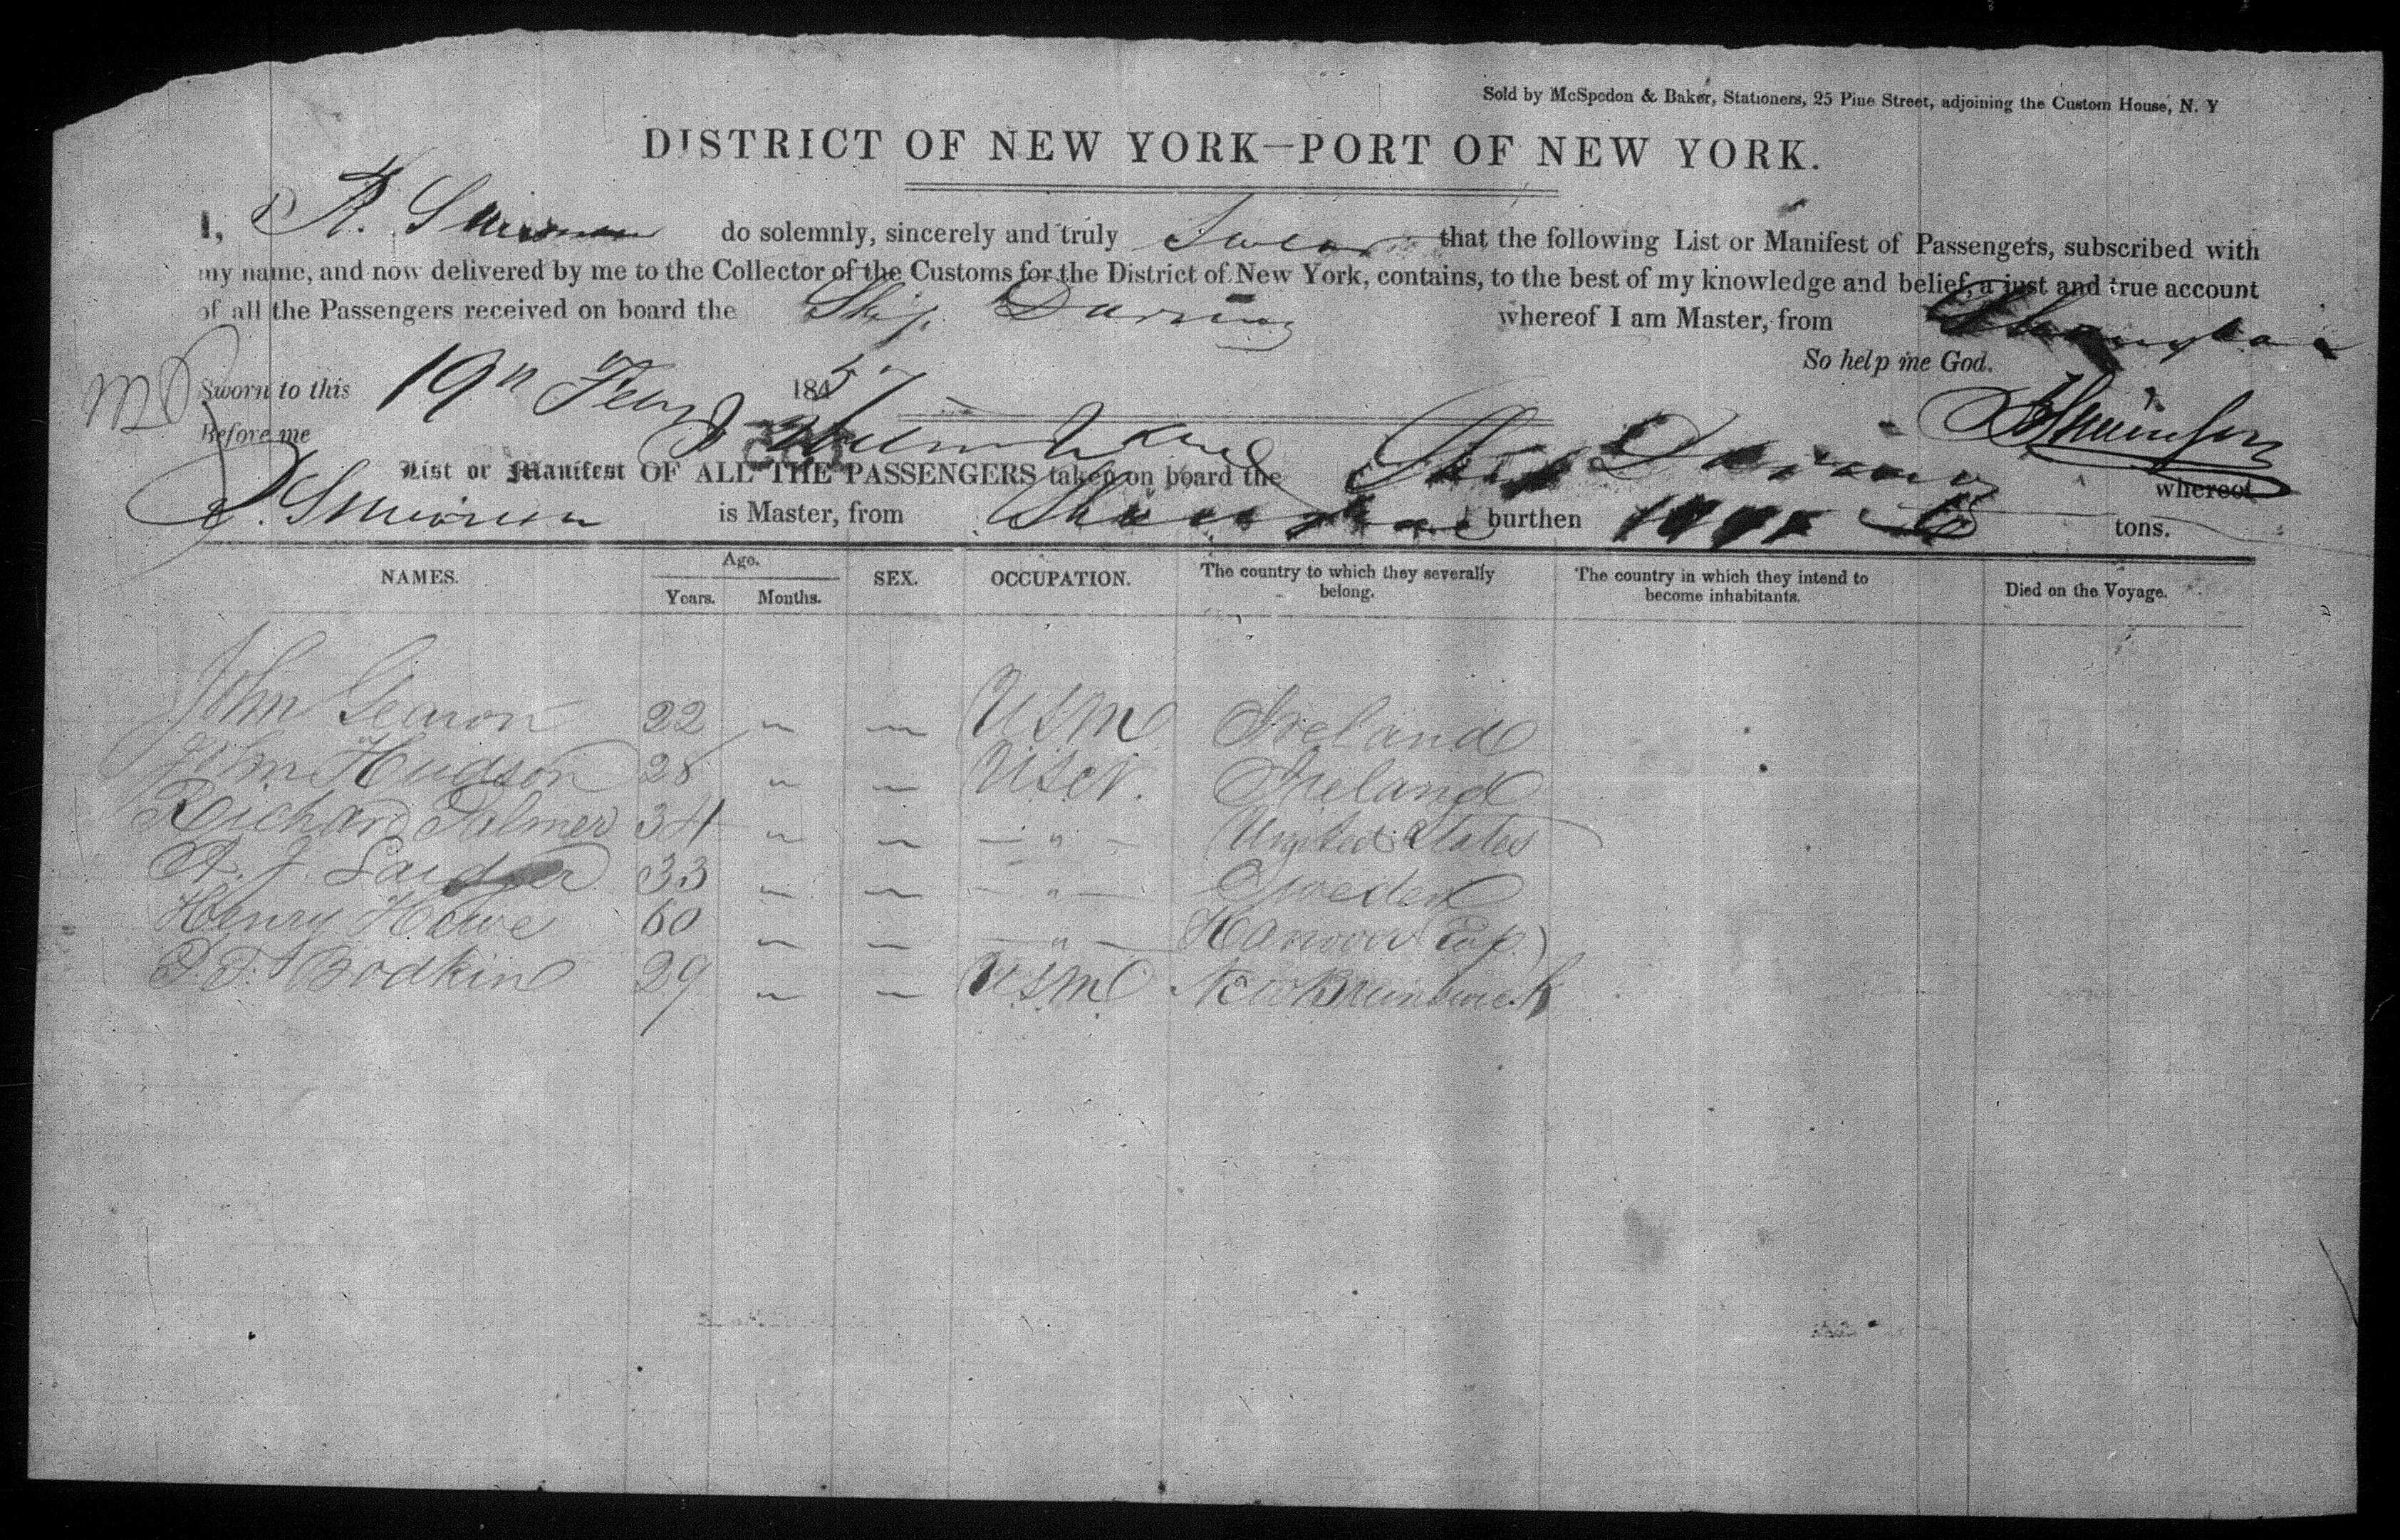 Sold by McSpedon & Baker, Stationers, 25 Pine Street, adjoining the Custom House, N. Y
DISTRICT OF NEW YORK—PORT OF NEW YORK.
I, R. do solemnly, sincerely and truly Swear that the following List or Manifest of Passengers, subscribed with
my name, and now delivered by me to the Collector of the Customs for the District of New York, contains, to the best of my knowledge and belief, a just and true account
of all the Passengers received on board the Ship whereof I am Master, from Shanghai
So help me God.
Sworn to this 19th Feby 1857
Before me
List or Manifest OF ALL THE PASSENGERS taken on board the Ship whereof
is Master, from burthen tons.
NAMES. Age. SEX. OCCUPATION. The country to which they severally belong. The country in which they intend to become inhabitants. Died on the Voyage.
Years. Months.
John 22 " — USM Ireland
John Hudson 28 " — USN. Ireland
Richard Palmer 34 " — — " — United States
A. J. 33 " — — " — Sweden
Henry Howe 60 " — — " — Hanover
Bodkin 29 " — USM New Brunswick